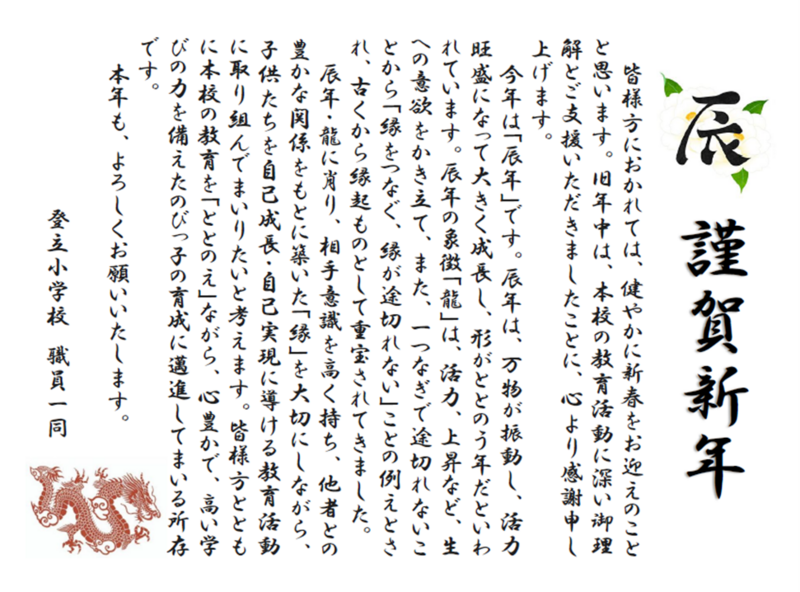 辰
謹賀新年
皆様方におかれては、健やかに新春をお迎えのこと
と思います。旧年中は、本校の教育活動に深い御理
解とご支援いただきましたことに、心より感謝申し
上げます。
今年は「辰年」です。辰年は、万物が振動し、活力
旺盛になって大きく成長し、形がととのう年だといわ
れています。辰年の象徴「龍」は、活力、上昇など、生
への意欲をかき立て、また、一つなぎで途切れないこ
とから「縁をつなぐ、縁が途切れない」ことの例えとさ
れ、古くから縁起ものとして重宝されてきました。
辰年・龍に肖り、相手意識を高く持ち、他者との
豊かな関係をもとに築いた「縁」を大切にしながら、
子供たちを自己成長・自己実現に導ける教育活動
に取り組んでまいりたいと考えます。皆様方ととも
に本校の教育を「ととのえ」ながら、心豊かで、高い学
びの力を備えたのびっ子の育成に邁進してまいる所存
です。
本年も、よろしくお願いいたします。
登立小学校　職員一同